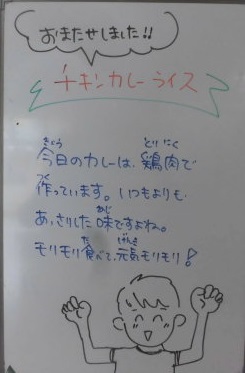 おまたせしました!!
チキンカレーライス
今日のカレーは、鶏肉で
作っています。いつもよりも
あっさりした味ですよね。
モリモリ食べて、元気モリモリ!